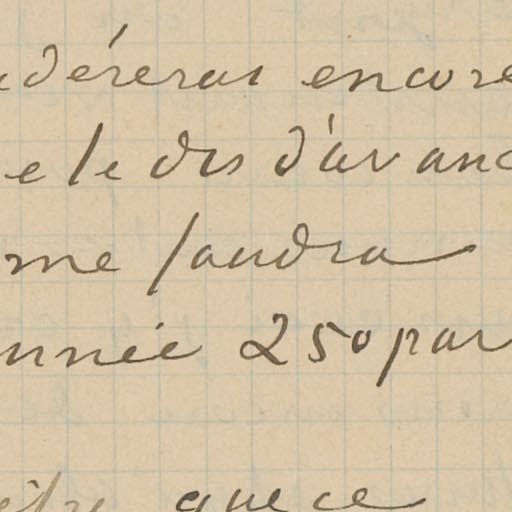 déreras encore
e le dis d'avanc
me faudra
année 250 par
que ce